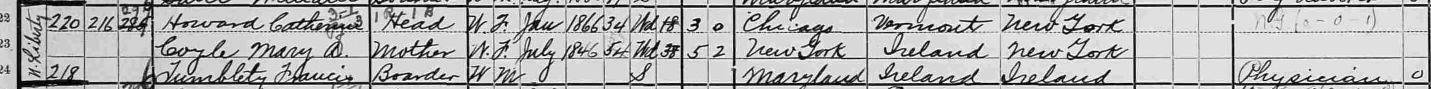 22 220 216 Howard Catherine Head W. F. Jan 1866 34 Wd 18 3 0 Chicago Vermont New York
23 Coyle Mary A. Mother W. F. July 1846 54 Wd 38 5 2 New York Ireland New York
24 N. Liberty 218 Tumblety Francis Boarder W M S Maryland Ireland Ireland Physician 0